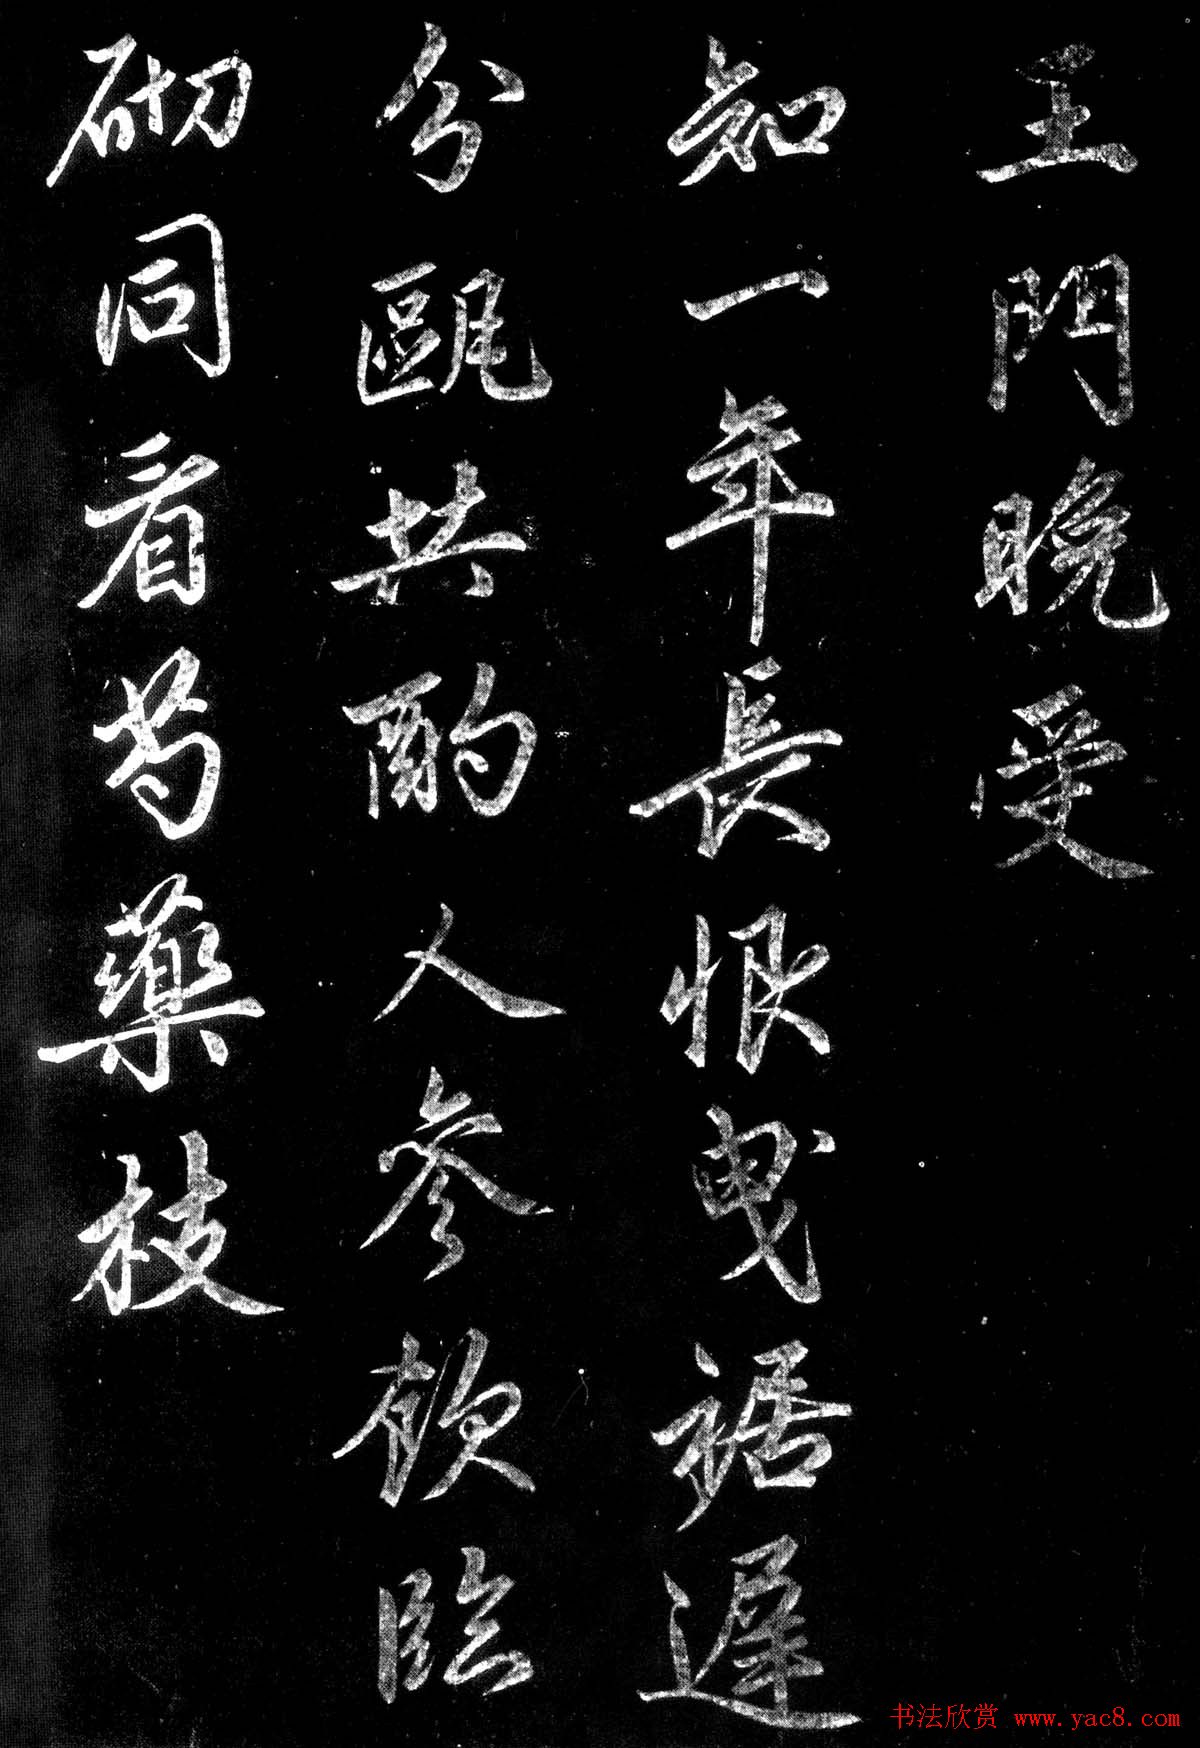 王門晚受
知一年長恨曳裾遲
分甌共酌人參飲臨
砌同看芍藥枝
书法欣赏 www.yac8.com